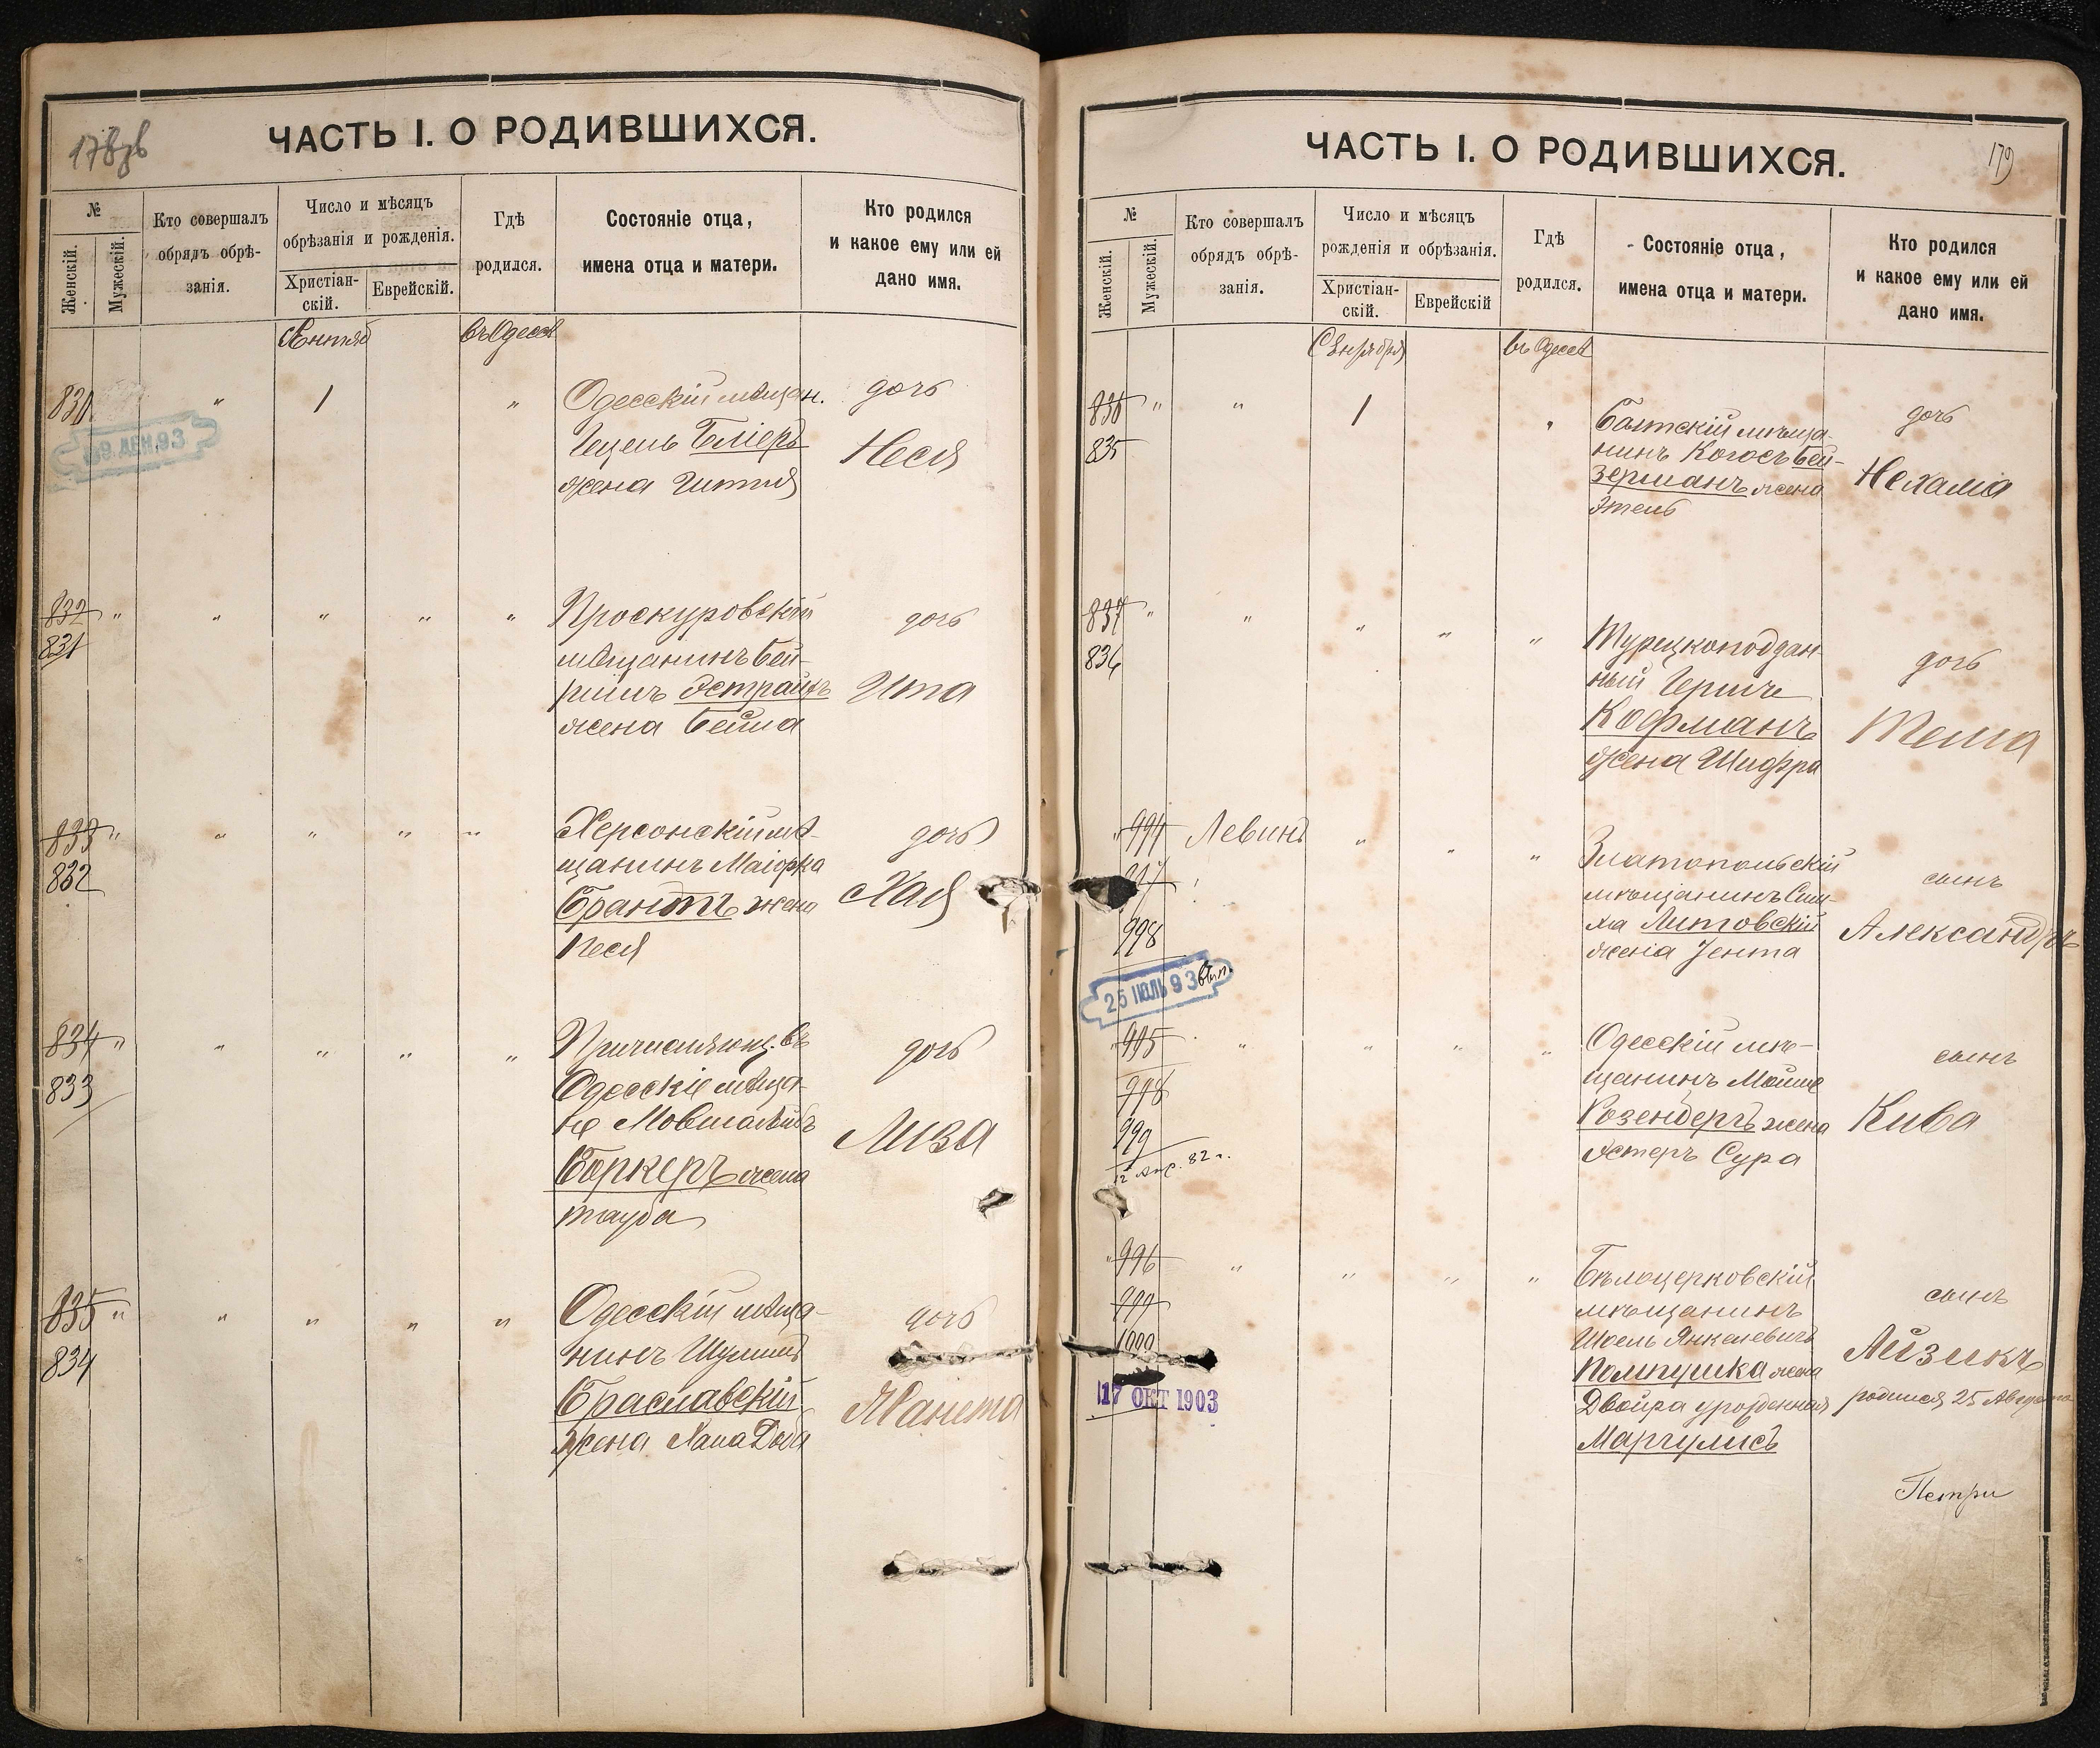 178об
ЧАСТЬ I. О РОДИВШИХСЯ.
№
Женскій.
Мужескій.
Кто совершалъ
обрядъ обрѣ-
занія.
Число и мѣсяцъ
обрѣзанія и рожденія.
Христіан-
скій.
Еврейскій.
Гдѣ
родился.
Состояніе отца,
имена отца и матери.
Кто родился
и какое ему или ей
дано имя.
Сентяб
въ Одессѣ
830
"
1
"
Одесскій мѣщан.
Бліеръ
жена
дочь
Неся
832 " " " " "
831
Проскуровскій
мѣщанинъ Бей-
жена Бейла
дочь
Ита
833 " " " " "
832
Херсонскій мѣ-
щанинъ Маіорка
Брантъ жена
Песя
дочь
Хая
834 " " " " "
833
Причисляющ. въ
Одесскіе мѣща-
не
Боркеръ жена
Тауба
дочь
Лиза
835 " " " " "
834
Одесскій мѣща-
нинъ
Браславскій
жена
дочь
Жанета
ЧАСТЬ I. О РОДИВШИХСЯ.
179
№
Женскій.
Мужескій.
Кто совершалъ
обрядъ обрѣ-
занія.
Число и мѣсяцъ
рожденія и обрѣзанія.
Христіан-
скій.
Еврейскій
Гдѣ
родился.
Состояніе отца,
имена отца и матери.
Кто родился
и какое ему или ей
дано имя.
Сентября
въ Одессѣ
836 " " 1 "
835
Балтскій мѣща-
нинъ Когосъ Бей-
зерманъ жена
Этель
дочь
Нехама
837 " " " " "
836
Турецкоподдан-
ный Герш
Кофманъ
жена Шифра
дочь
Тема
" 994
997
998
Левинъ " " "
25 ІЮЛЬ 93
вып.
Златопольскій
мѣщанинъ Сим-
ха Литовскій
жена Іента
сынъ
Александръ
" 995 " " " "
998
999
Одесскій мѣ-
щанинъ Мойше
Розенберъ жена
Эстеръ Сура
сынъ
Кива
" 996 " " " "
999
1000
17 ОКТ 1903
Бѣлоцерковскій
мѣщанинъ
Шоель Янкелевичъ
Помпушка жена
Двойра урожденная
Маргулисъ
сынъ
Айзикъ
родился 25 Августа